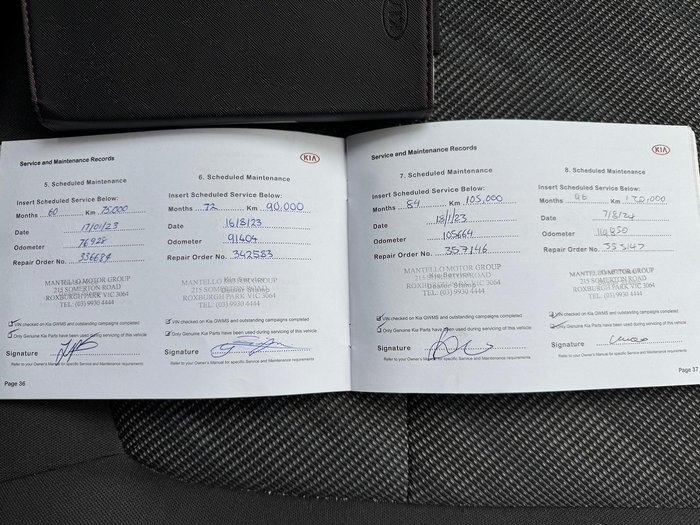 KIA
Service and Maintenance Records
KIA
5. Scheduled Maintenance
Insert Scheduled Service Below:
Months 60 Km 75,000
Date 17/01/23
Odometer 76928
Repair Order No. 336684
MANTELLO MOTOR GROUP
215 SOMERTON ROAD
ROXBURGH PARK VIC 3064
TEL. (03) 9930 4444
VIN checked on Kia GWMS and outstanding campaigns completed
Only Genuine Kia Parts have been used during servicing of this vehicle
Signature
Refer to your Owner's Manual for specific Service and Maintenance requirements
Page 36
6. Scheduled Maintenance
Insert Scheduled Service Below:
Months 72 Km 90,000
Date 16/8/23
Odometer 91404
Repair Order No. 342583
Kia Service
Dealer Stamp
MANTELLO MOTOR GROUP
215 SOMERTON ROAD
ROXBURGH PARK VIC 3064
TEL. (03) 9930 4444
VIN checked on Kia GWMS and outstanding campaigns completed
Only Genuine Kia Parts have been used during servicing of this vehicle
Signature
Refer to your Owner's Manual for specific Service and Maintenance requirements
Service and Maintenance Records
KIA
7. Scheduled Maintenance
Insert Scheduled Service Below:
Months 84 Km 105,000
Date 18/1/23
Odometer 105664
Repair Order No. 357146
Kia Service
Dealer Stamp
MANTELLO MOTOR GROUP
215 SOMERTON ROAD
ROXBURGH PARK VIC 3064
TEL. (03) 9930 4444
VIN checked on Kia GWMS and outstanding campaigns completed
Only Genuine Kia Parts have been used during servicing of this vehicle
Signature
Refer to your Owner's Manual for specific Service and Maintenance requirements
8. Scheduled Maintenance
Insert Scheduled Service Below:
Months 96 Km 120,000
Date 7/8/24
Odometer
Repair Order No.
MANTELLO MOTOR GROUP
215 SOMERTON ROAD
ROXBURGH PARK VIC 3064
TEL. (03) 9930 4444
VIN checked on Kia GWMS and outstanding campaigns completed
Only Genuine Kia Parts have been used during servicing of this vehicle
Signature
Refer to your Owner's Manual for specific Service and Maintenance requirements
Page 37